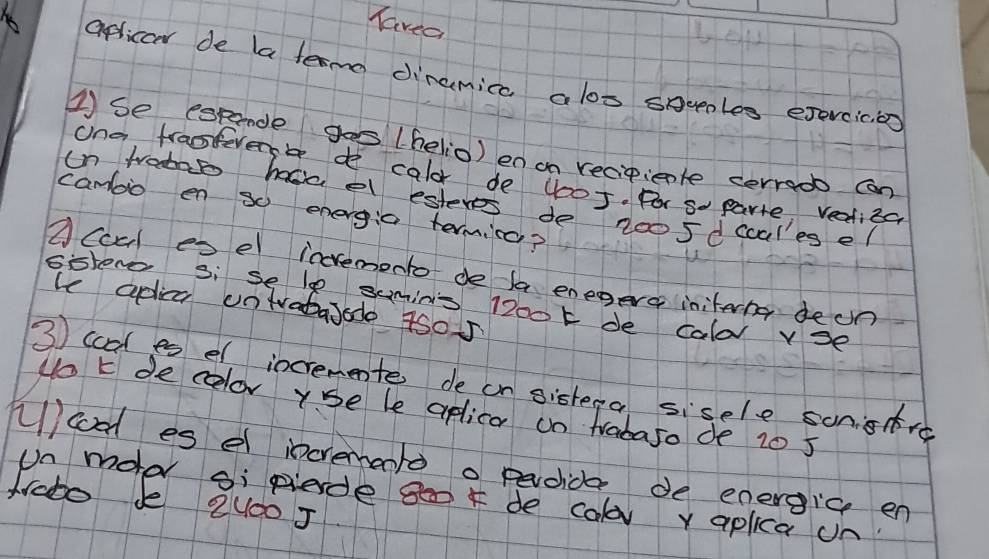 Tarea
aplicar de la termo dinamica a los siguentes ejercicios
1) se espande gas (helio) en un recipiente cerrado con
una trasferencia de calor de 400 J. Por su parte, realiza
un trabajo hacia el de 200 J ¿cual es el
cambio en su energia termica?
2) cual es el incremento de la de un
sistema si se le suminis 1200 k de calor y se
le aplica un trabajo de 750 J
3) cual es el incremento de un sistema si se le
40 k de calor y se le aplica un trabajo de 20 J
4) cual es el incremento o perdida de energia en
un motor si pierde 800 k de calor y aplica un
trabo de 2400 J